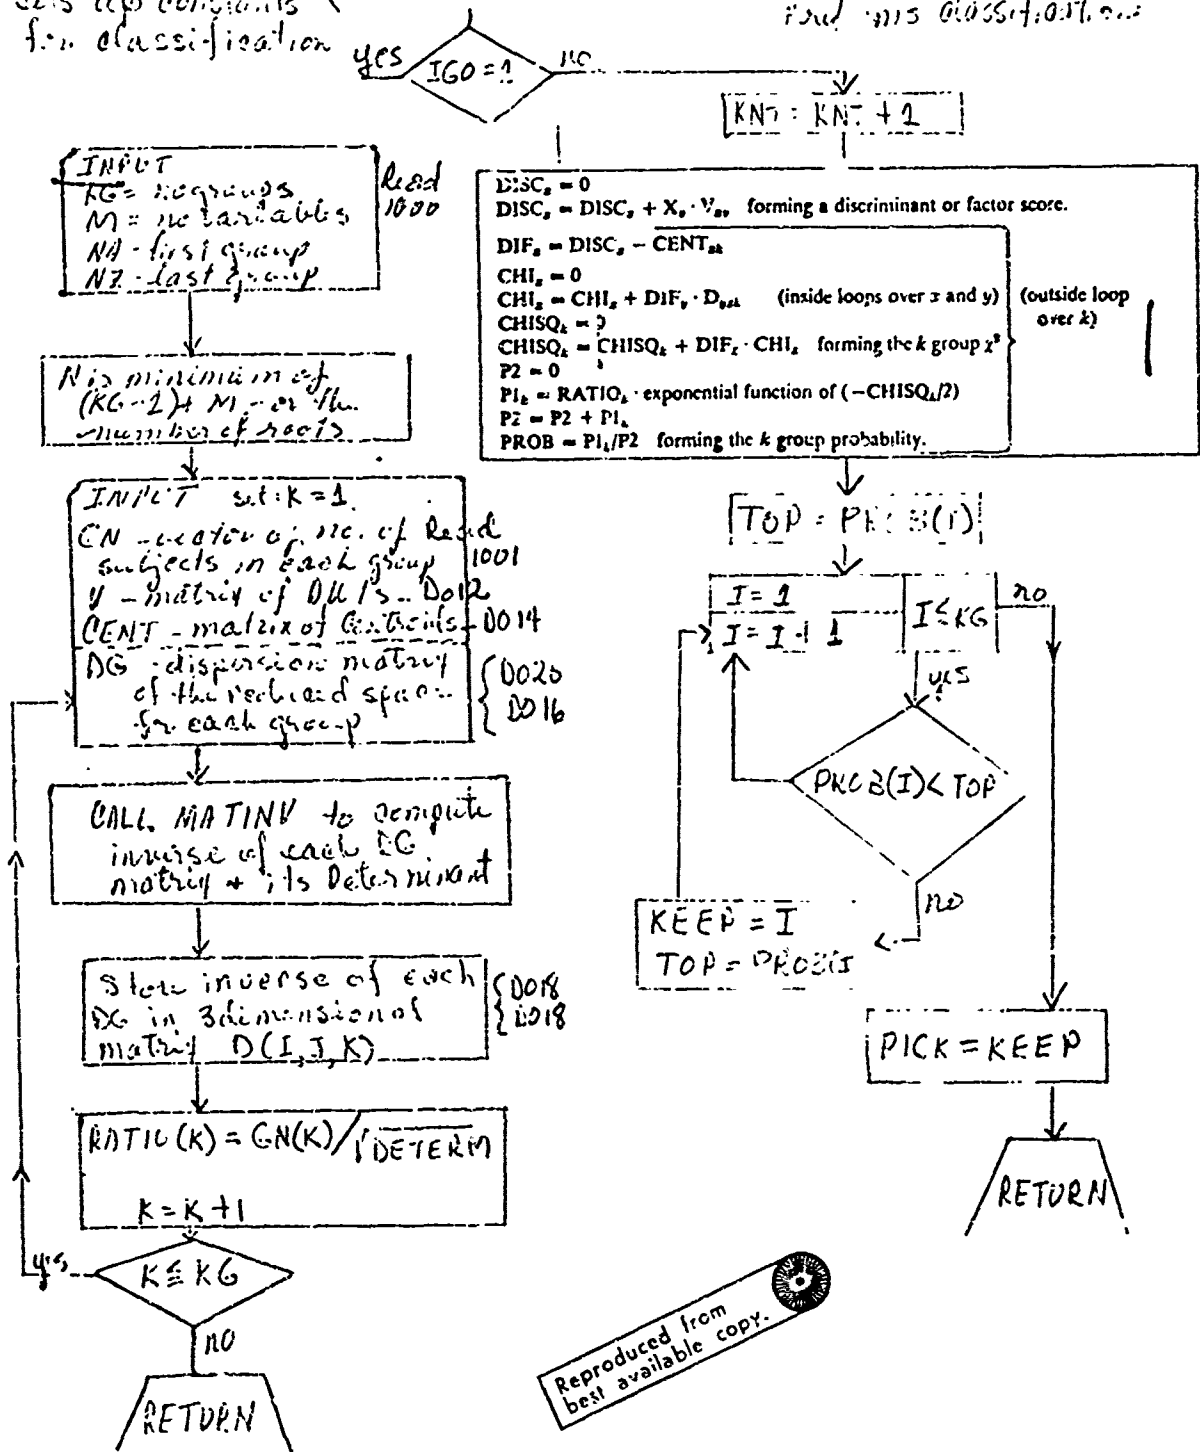 for classification
yes
IGO = 1
no
INPUT
KG = no groups
M = no variables
NA - first group
NZ - last group
Read
1000
N is minimum of
(KG-1) + M - or the
number of roots
INPUT set: K = 1
no. of Read
subjects in each group 1001
matrix of Do12
CENT - matrix of Centroids - DO14
DG - dispersion matrix
of the reduced space
for each group
DO20
DO16
CALL MATINV to compute
inverse of each DG
matrix + its Determinant
Store inverse of each
DG in 3 dimensional
matrix D(I, J, K)
DO18
DO18
RATIO(K) = GN(K)/√DETERM
K = K + 1
K ≦ KG
yes
no
RETURN
KNT = KNT + 1
DISCₓ = 0
DISCₓ = DISCₓ + Xᵥ · Vₓᵥ forming a discriminant or factor score.
DIFₓ = DISCₓ − CENTₓₖ
CHIₓ = 0
CHIₓ = CHIₓ + DIFᵧ · Dᵧₓₖ (inside loops over x and y)
CHISQₖ = 0
CHISQₖ = CHISQₖ + DIFₓ · CHIₓ forming the k group χ²
P2 = 0
P1ₖ = RATIOₖ · exponential function of (−CHISQₖ/2)
P2 = P2 + P1ₖ
PROB = P1ₖ/P2 forming the k group probability.
(outside loop
over k)
TOP = PROB(1)
I = 1
I = I + 1
I ≤ KG
no
yes
PROB(I) < TOP
no
KEEP = I
TOP = PROB(I
PICK = KEEP
RETURN
Reproduced from
best available copy.